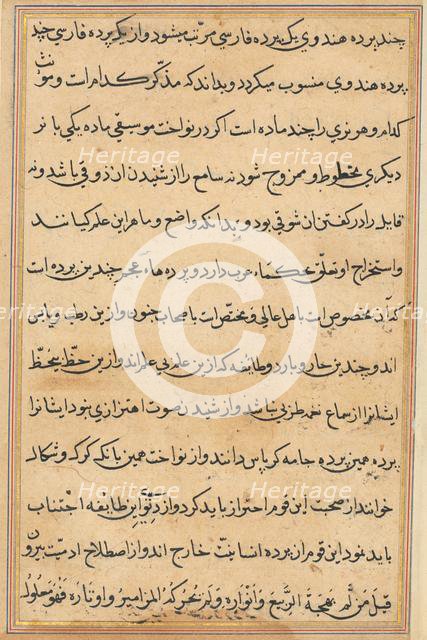 چند پرده هندوي یك پرده فارسي مرتب میشود و از یك پرده فارسي چند
پرده هندوي منسوب میکردد و بداند که مذکر کدام است و مونث
کدام و هر نري را چند ماده است اکر در نواخت موسیقي ماده یکي با نر
دیکري مخطوط و ممزوج شود نه سامع را از شنیدن ان ذوقي باشد و نه
قایل را در کفتن ان شوقي بود و بداند که واضع و ماهر این علم کیانند
و استخراج او تعلق بحکماء عرب دارد و پرده هاء عجم چندین پرده است
که آن مخصوص است باهل عالي و مختص است باصحاب جنون و از ین رطب و یابس
اند و چندین حار و بارد و طایفه که از ین علم بي علم اند و از ین حظ بیحظ
ایشانرا از سماع نغمه طربي نباشد و از شنیدن صوت اهتزازي نبود ایشانرا
پرده همین پرده جامه کرباس دانند و از نواخت همین بانك کرك و شکال
خوانند از صحبت این قوم احتراز باید کرد و از دیدن این طایفه اجتناب
باید نمود این قوم از پرده انسانیت خارج اند و از اصطلاح ادمیت بیرون
قیل من لم بهجة الربیع و انواره و لم تحرکه المزامیر و اوتاره فهو معلول
Heritage
Images